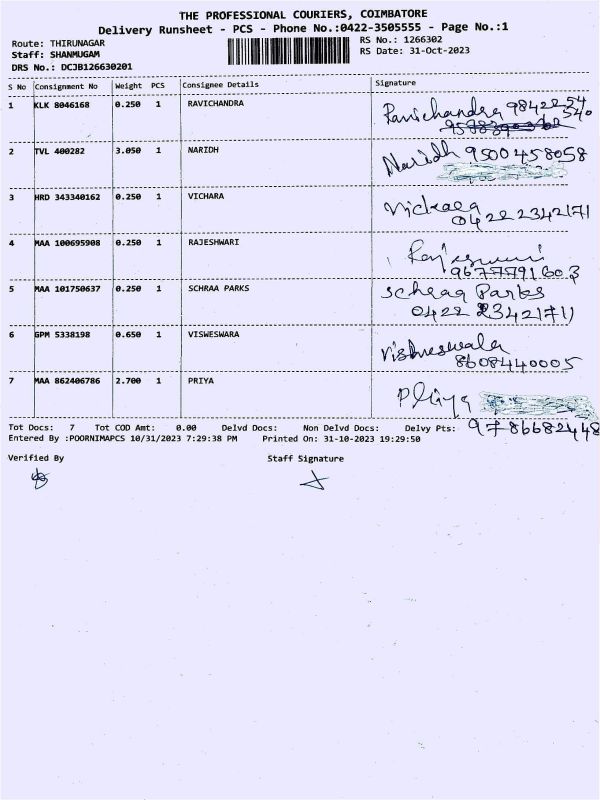 THE PROFESSIONAL COURIERS, COIMBATORE
Delivery Runsheet - PCS - Phone No.:0422-3505555 - Page No.:1
Route: THIRUNAGAR RS No.: 1266302
Staff: SHANMUGAM RS Date: 31-Oct-2023
DRS No.: DCJB126630201
S No Consignment No Weight PCS Consignee Details Signature
1 KLK 8046168 0.250 1 RAVICHANDRA Ravichandra 98422 54
540
2 TVL 400282 3.050 1 NARIDH Naridh 9500458058
3 HRD 343340162 0.250 1 VICHARA
0422 2342171
4 MAA 100695908 0.250 1 RAJESHWARI
9677791603
5 MAA 101750637 0.250 1 SCHRAA PARKS Schraa Parks
0422 2342171
6 GPM 5338198 0.650 1 VISWESWARA
8608440005
7 MAA 862406786 2.700 1 PRIYA Priya
9786682448
Tot Docs: 7 Tot COD Amt: 0.00 Delvd Docs: Non Delvd Docs: Delvy Pts:
Entered By :POORNIMAPCS 10/31/2023 7:29:38 PM Printed On: 31-10-2023 19:29:50
Verified By Staff Signature